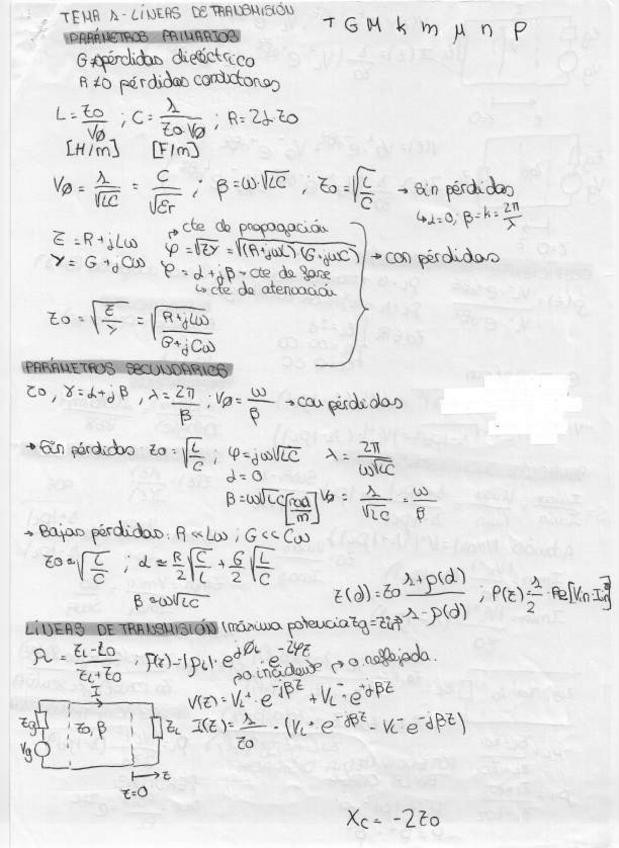 TEMA 1-LÍNEAS DE TRANSMISIÓN
T G M k m μ n p
PARÁMETROS PRIMARIOS
G≠0 pérdidas dieléctrico
R≠0 pérdidas conductores
L=Zo/VØ ; C=1/(Zo·VØ) ; R=2α·Zo
[H/m] [F/m]
VØ=1/√LC = C/√εr ; β=ω·√LC ; Zo=√(L/C) → Sin pérdidas
↳α=0; β=k=2π/λ
Z=R+jLω
Y=G+jCω
cte de propagación
φ=√ZY=√(R+jωL)(G+jωC)
φ=α+jβ→cte de fase
↳cte de atenuación
→con pérdidas
Zo=√(Z/Y)=√((R+jLω)/(G+jCω))
PARÁMETROS SECUNDARIOS
Zo, γ=α+jβ, λ=2π/β ; VØ=ω/β →con pérdidas
→Sin pérdidas Zo=√(L/C) ; φ=jω√LC λ=2π/(ω√LC)
α=0
β=ω√LC [rad/m] VØ=1/√LC=ω/β
→Bajas pérdidas: R<<Lω ; G<<Cω
Zo≈√(L/C) ; α≈R/2√(C/L)+G/2√(L/C)
β≈ω√LC
Z(d)=Zo (1+ρ(d))/(1-ρ(d)) ; P(z)=1/2·Re[Vn·In*]
LÍNEAS DE TRANSMISIÓN (máxima potencia Zg=Zin*)
ρL=(ZL-Zo)/(ZL+Zo) ; ρ(z)=|ρL|·e^jØL·e^-2φz
p.o incidente p→o.reflejada.
V(z)=VL+·e^-jβz+VL-·e^+jβz
I(z)=1/Zo·(VL+·e^-jβz-VL-·e^-jβz)
I
Zg
Zo, β
ZL
Vg
→z
z=0
Xc=-2Zo